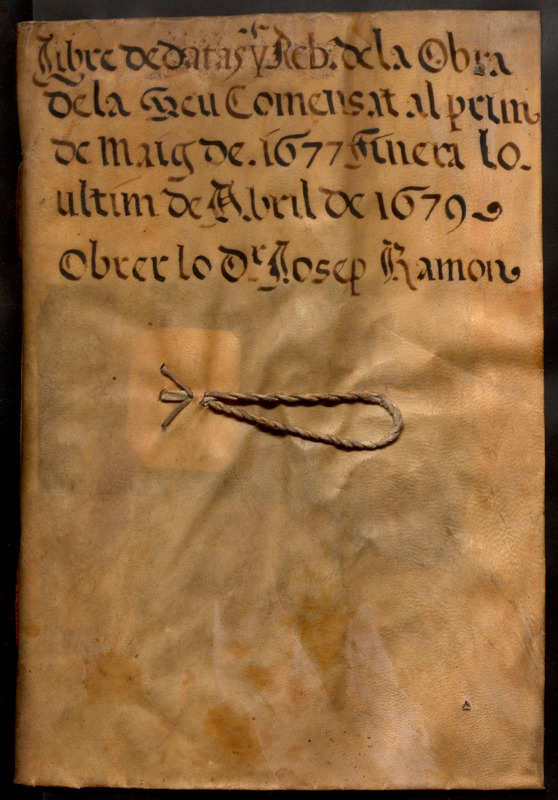 Libre de datas y Reb.ᵗ de la Obra
de la Seu Comensat al prim
de Maig de .1677 Finera lo
ultim de Abril de 1679
Obrer lo Dʳ. Josep Ramon